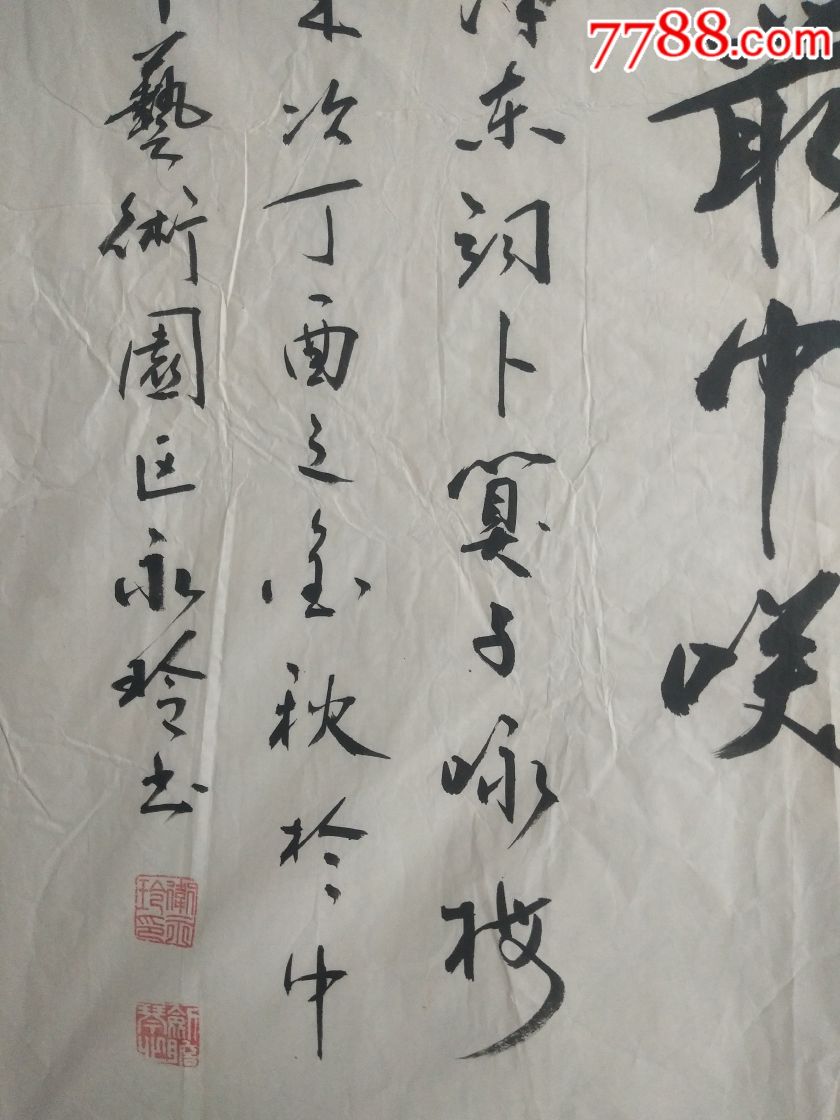 7788.com
丛中咲
泽东词卜算子咏梅
次丁酉之金秋於中
艺術園区永玲书
衛永玲印